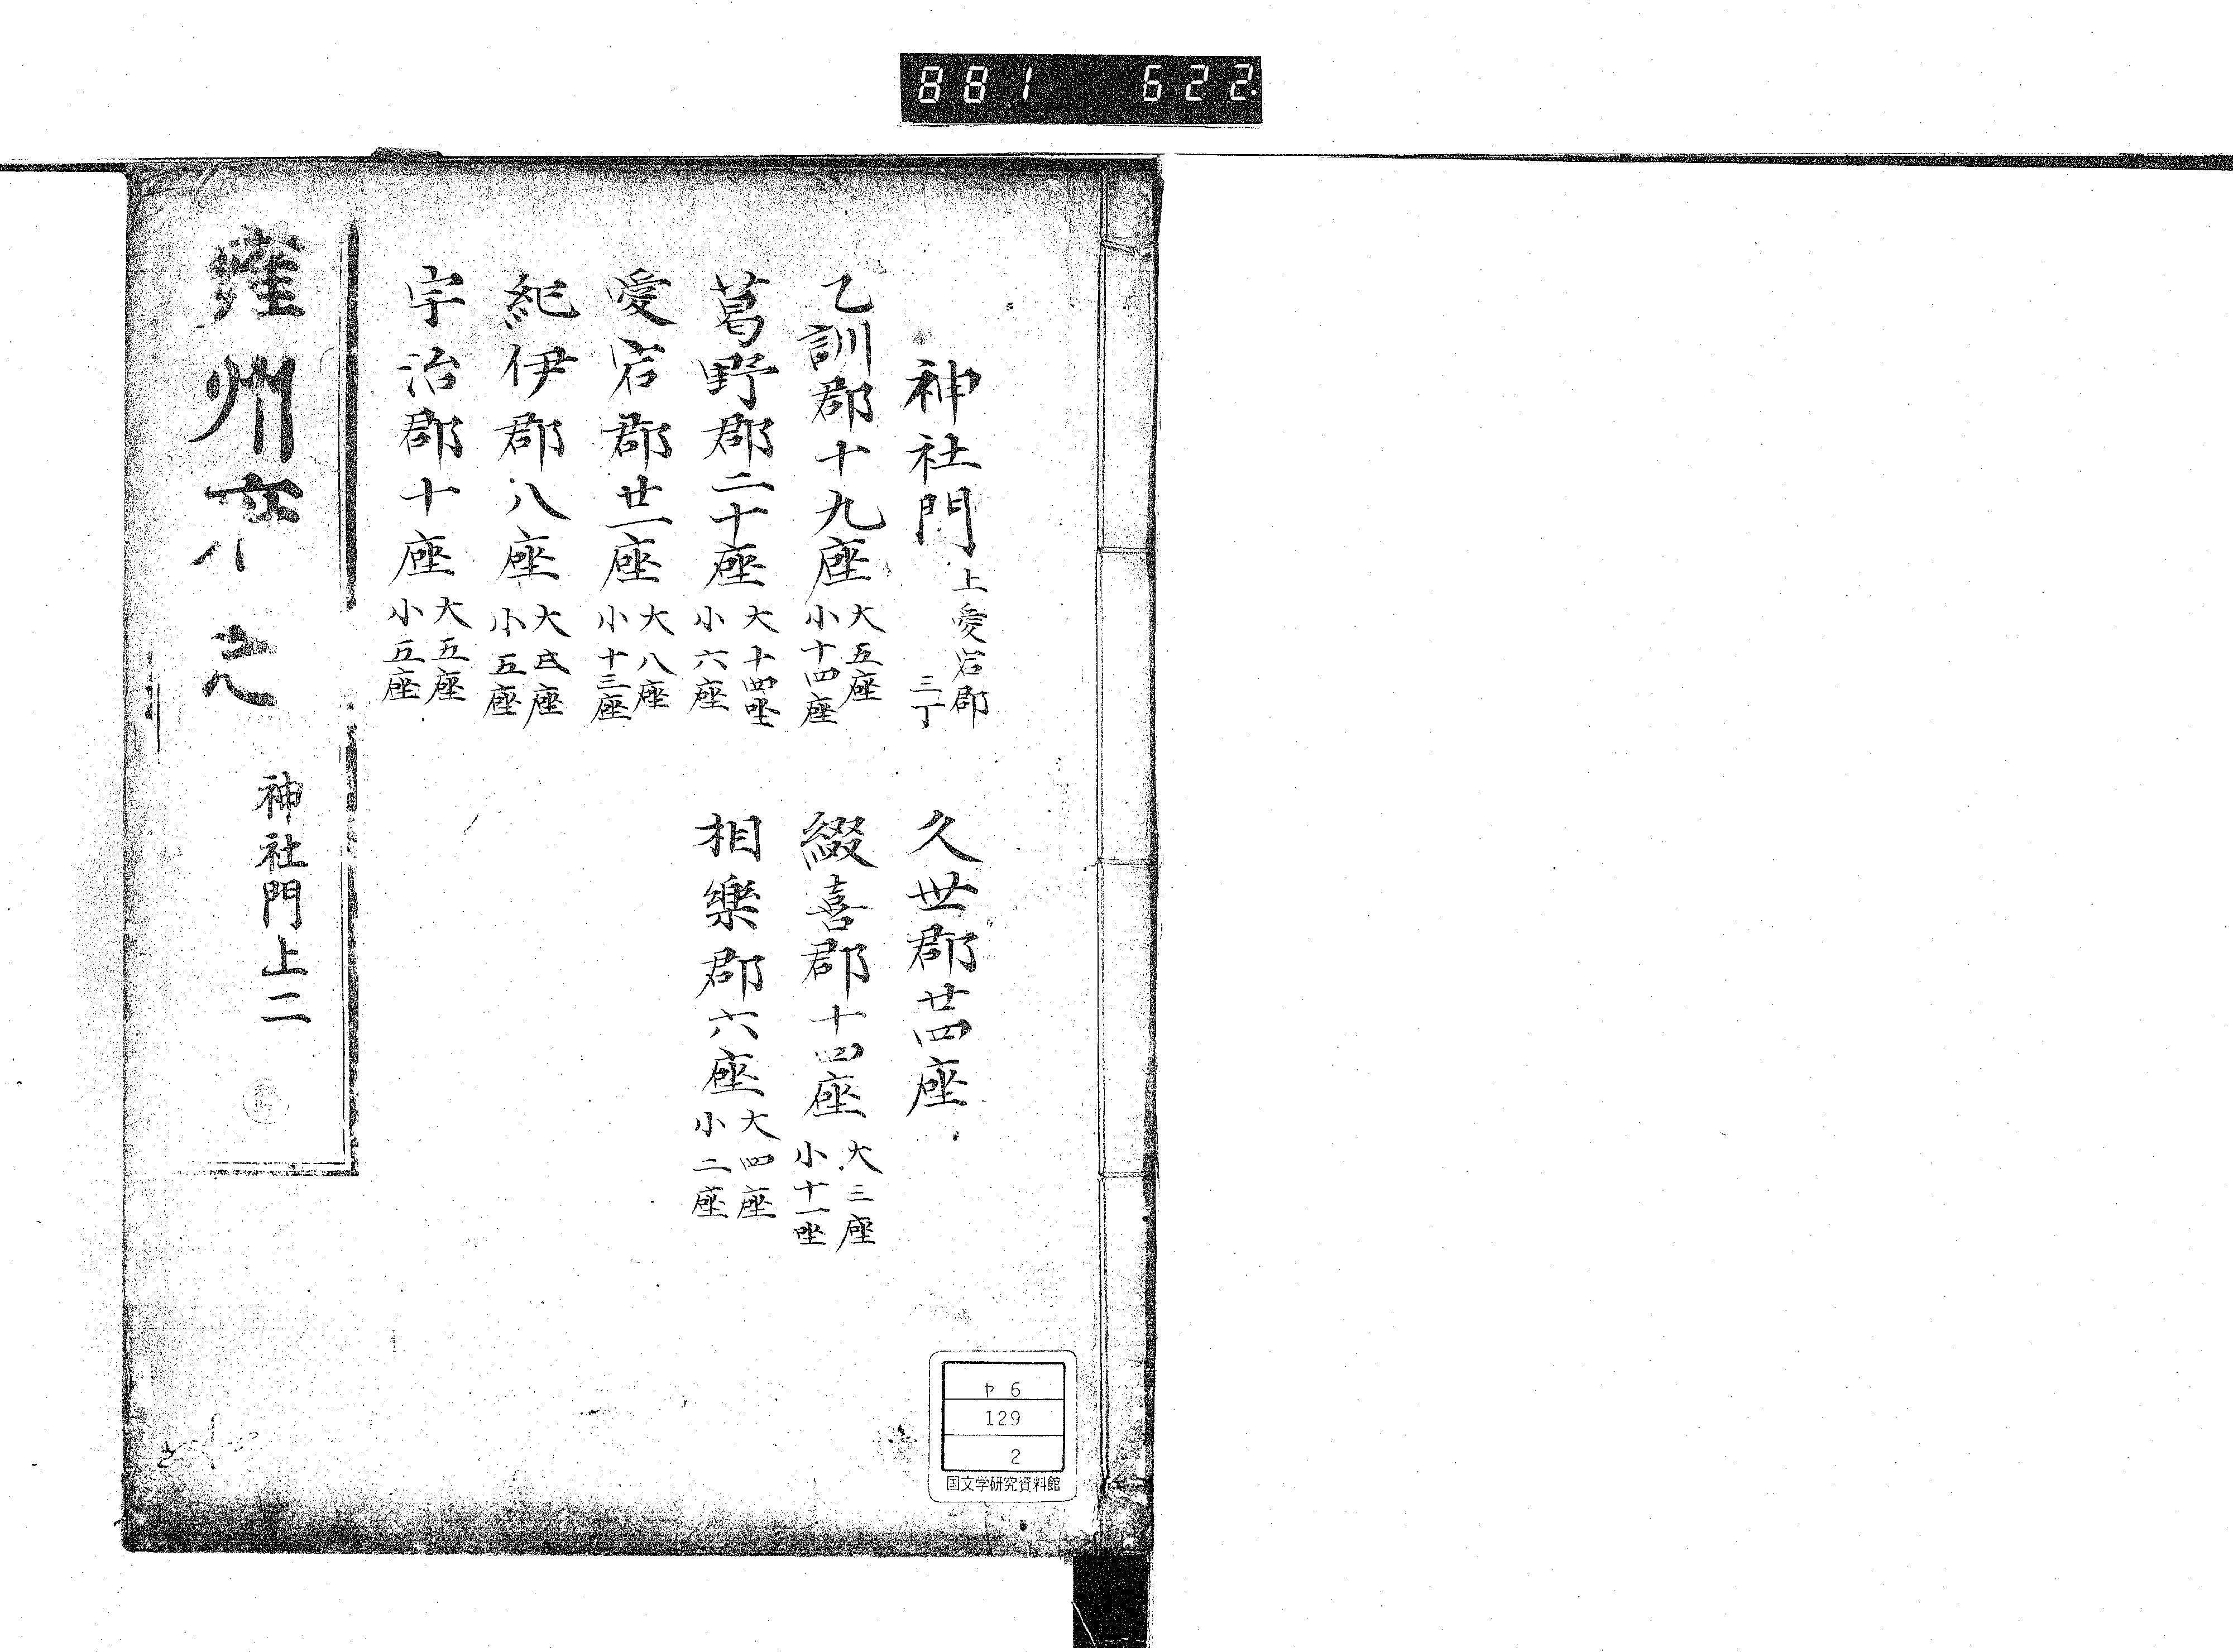 881 622
神社門 上愛宕郡
三丁
乙訓郡十九座 大五座
小十四座
葛野郡二十座 大十四座
小六座
愛宕郡廿一座 大八座
小十三座
紀伊郡八座 大弎座
小五座
宇治郡十座 大五座
小五座
久世郡廿四座
綴喜郡十四座 大三座
小十一座
相樂郡六座 大四座
小二座
雍州府志
神社門上二
ヤ 6
129
2
国文学研究資料館